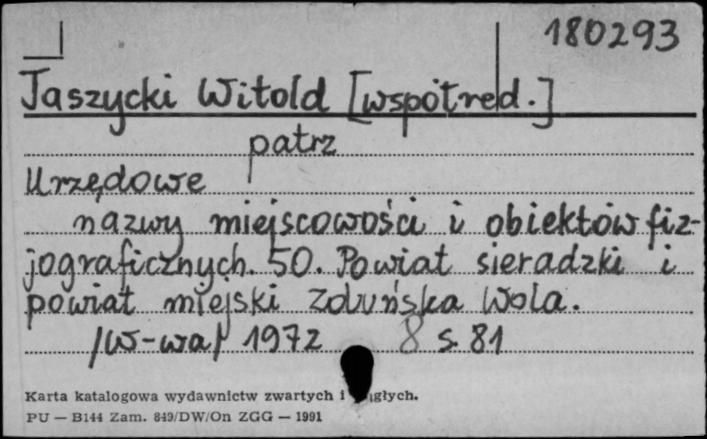 180293
Jaszycki Witold [współred.]
patrz
Urzędowe
nazwy miejscowości i obiektów fiz-
jograficznych. 50. Powiat sieradzki i
powiat miejski Zduńska Wola.
/W-wa/ 1972 8 s. 81
Karta katalogowa wydawnictw zwartych i
PU — B144 Zam. 849/DW/On ZGG — 1991